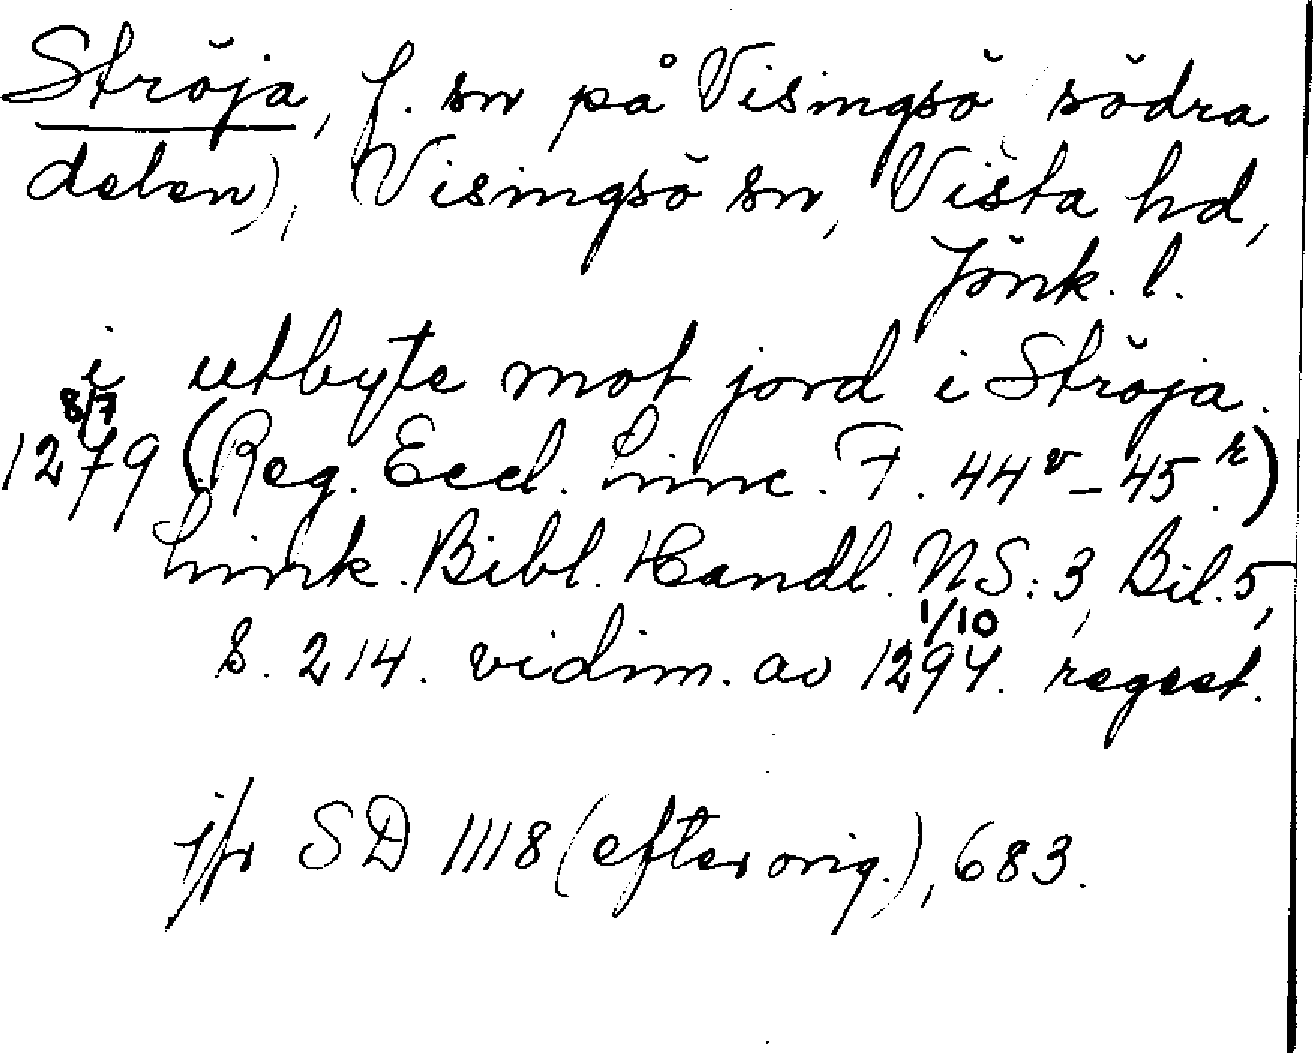 Ströja, f. sn på Visingsö (södra
delen), (Visingsö sn, Vista hd,
Jönk. l.
i utbyte mot jord i Ströja.
8/7
1279 (Reg. Eccl. Linc. F. 44v–45r.)
Link. Bibl. Handl. NS: 3, Bil. 5,
1/10
s. 214. vidim. av 1294. regest.
jfr SD 1118 (efter orig.), 683.